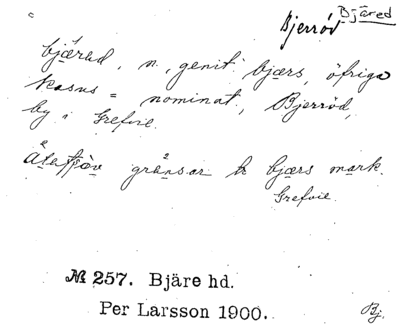 Bjäred
Bjerröd
bjærad, n, genit. bjærs, öfriga
kasus = nominat, Bjerröd,
by i Grefvie.
gränsar bjærs mark.
Grefvie.
№ 257. Bjäre hd.
Per Larsson 1900.
Bj.